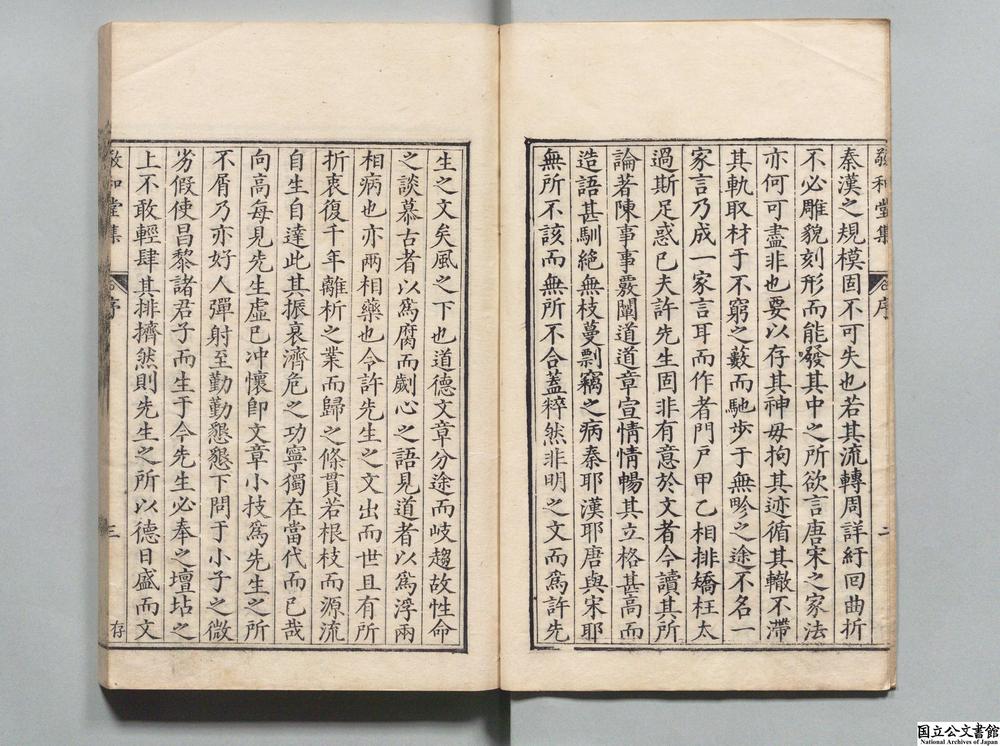 敬和堂集
序
二
秦漢之規模固不可失也若其流轉周詳紆回曲折
不必雕貌刻形而能發其中之所欲言唐宋之家法
亦何可盡非也要以存其神毋拘其迹循其轍不滯
其軌取材于不窮之藪而馳步于無畛之途不名一
家言乃成一家言耳而作者門戸甲乙相排矯枉太
過斯足惑已夫許先生固非有意於文者今讀其所
論著陳事事覈闡道道章宣情情暢其立格甚高而
造語甚馴絶無枝蔓剽竊之病秦耶漢耶唐與宋耶
無所不該而無所不合蓋粹然非明之文而爲許先
生之文矣風之下也道德文章分途而岐趨故性命
之談慕古者以爲腐而劌心之語見道者以爲浮兩
相病也亦兩相藥也今許先生之文出而世且有所
折衷復千年離析之業而歸之條貫若根枝而源流
自生自達此其振衰濟危之功寧獨在當代而已哉
向高每見先生虛已冲懷卽文章小技爲先生之所
不屑乃亦好人彈射至勤勤懇懇下問于小子之微
劣假使昌黎諸君子而生于今先生必奉之壇坫之
上不敢輕肆其排擠然則先生之所以德日盛而文
敬和堂集
序
三
存
国立公文書館
National Archives of Japan